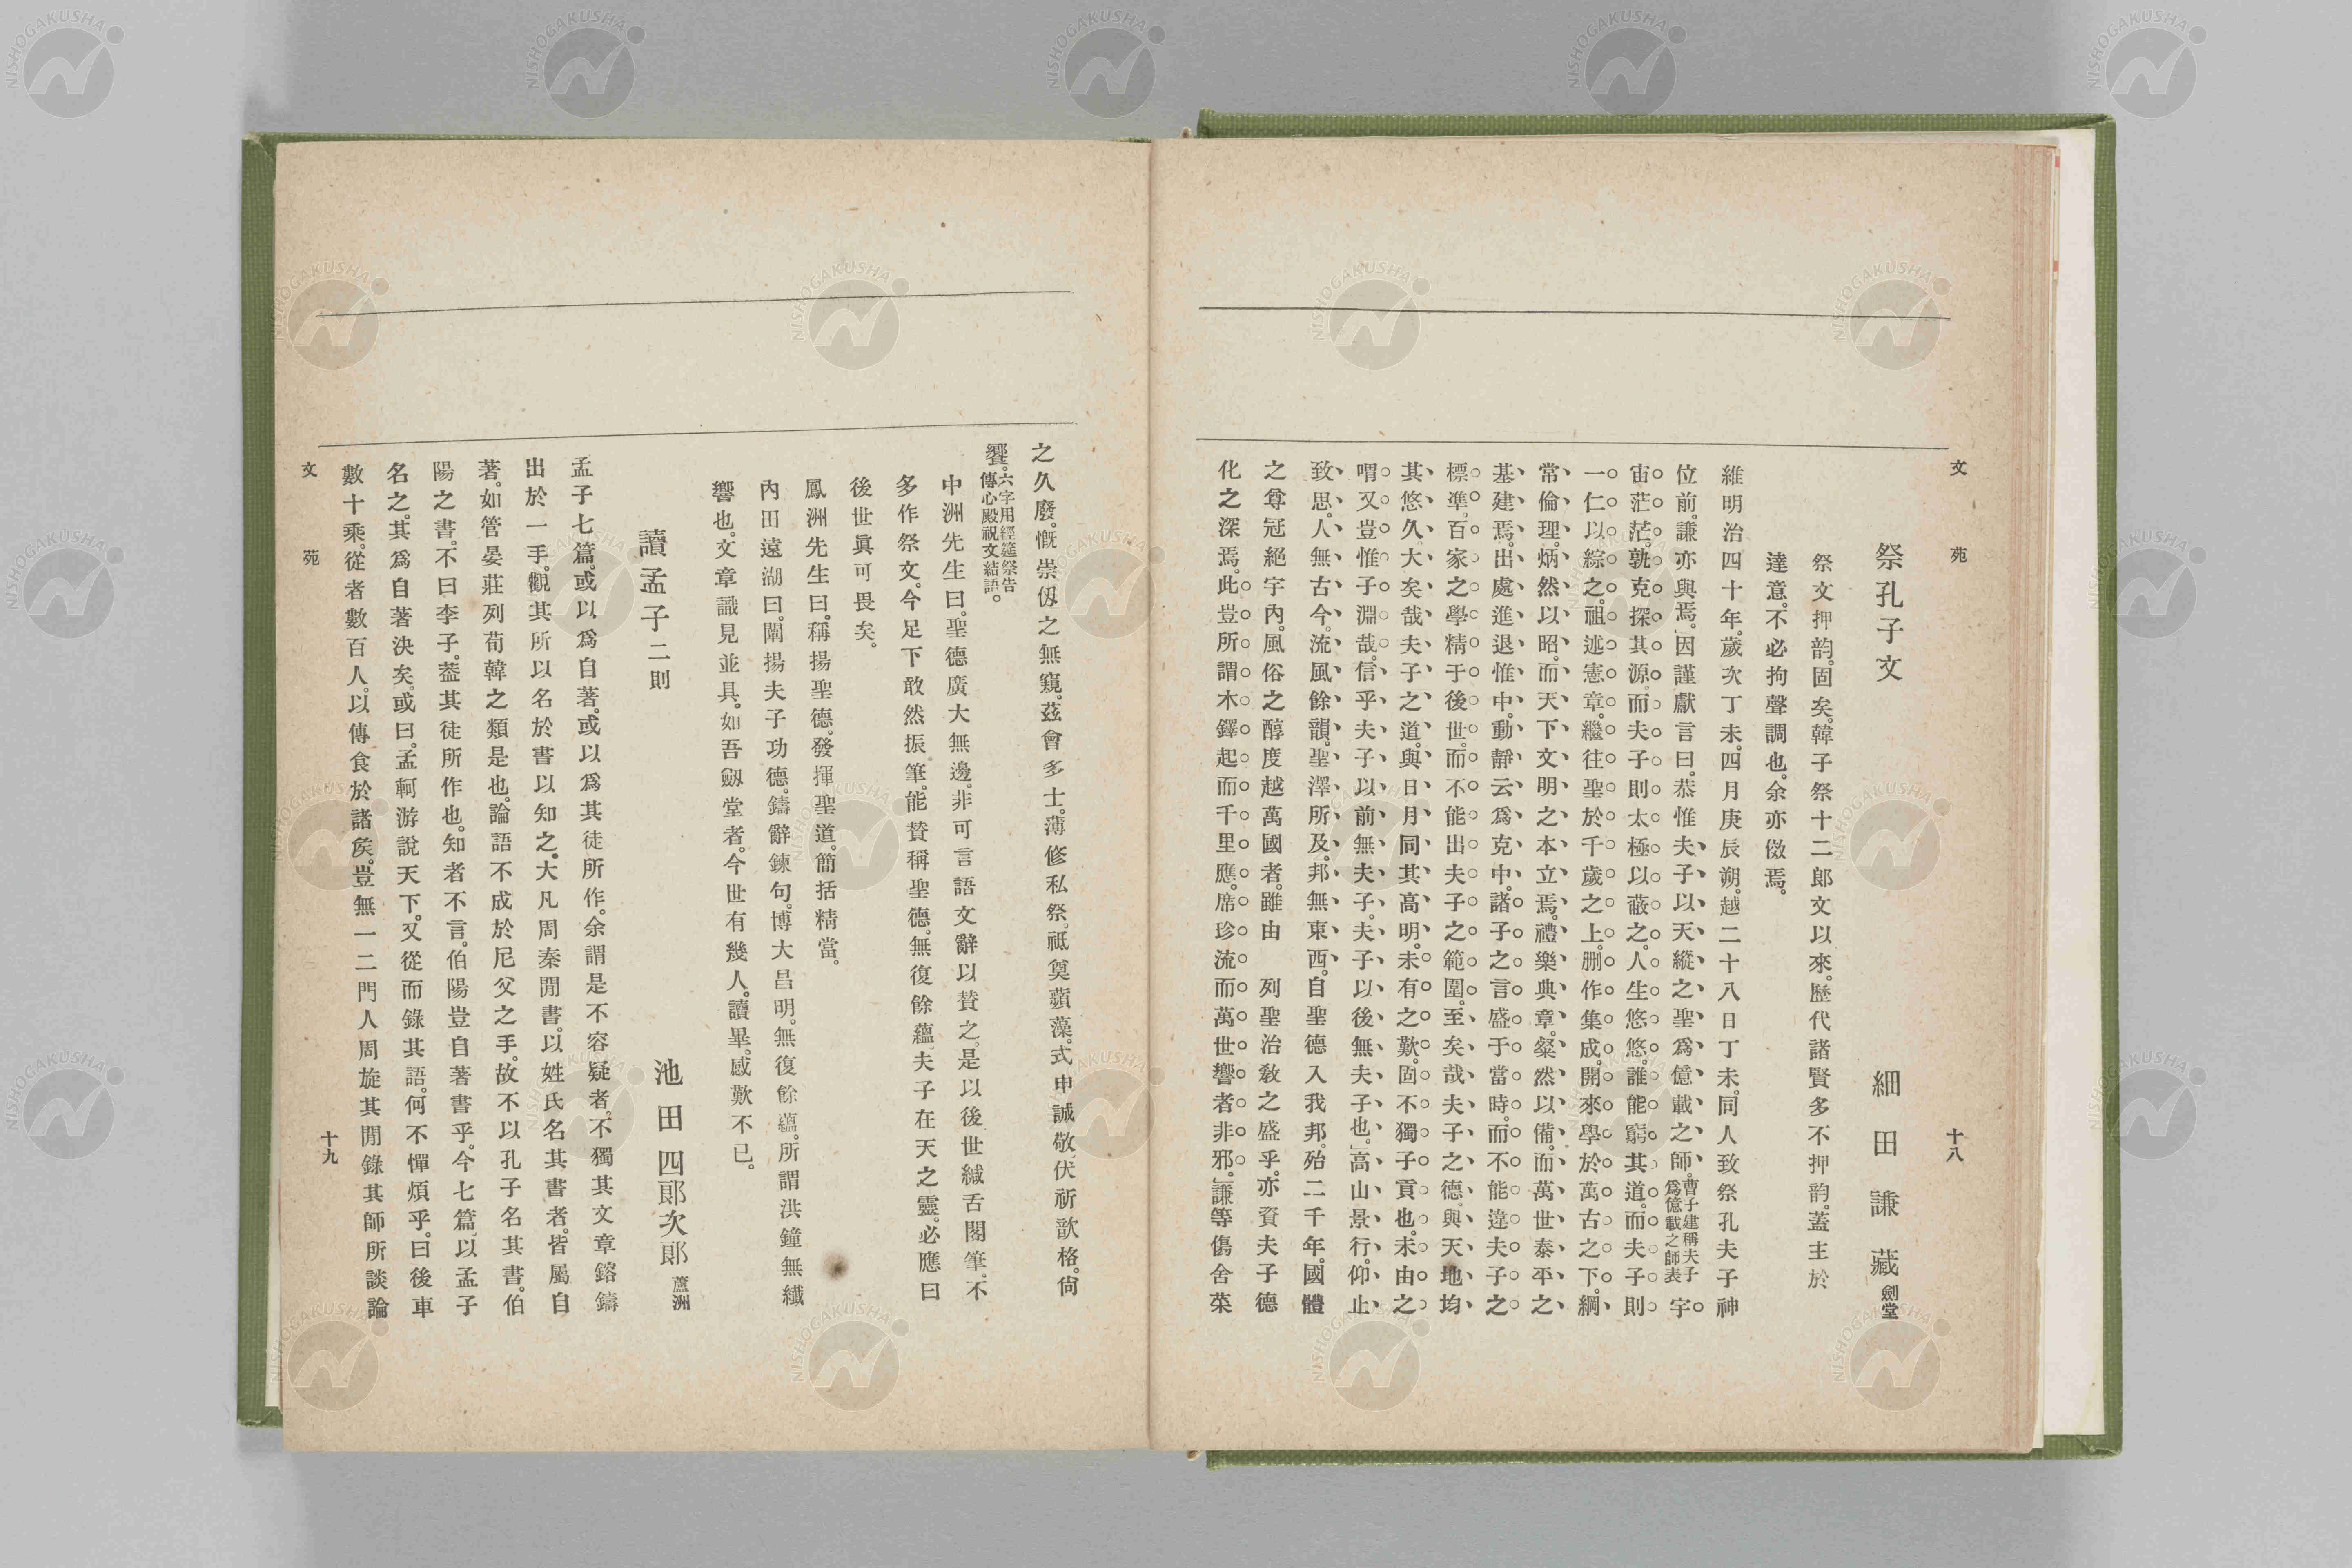 文苑 十八
祭孔子文 細田謙藏劍堂
祭文押韵。固矣。韓子祭十二郎文以來。歷代諸賢多不押韵。蓋主於
達意。不必拘聲調也。余亦傚焉。
維明治四十年。歲次丁未。四月庚辰朔。越二十八日丁未。同人致祭孔夫子神
位前。謙亦與焉。因謹獻言曰。恭惟夫子以天縱之聖。爲億載之師。曹子建稱夫子爲億載之師表宇
宙茫茫。孰克探其源。而夫子則太極以蔽之。人生悠悠。誰能窮其道。而夫子則
一仁以綜之。祖述憲章。繼往聖於千歲之上。刪作集成。開來學於萬古之下。綱
常倫理。炳然以昭。而天下文明之本立焉。禮樂典章。粲然以備。而萬世泰平之
基建焉。出處進退惟中。動靜云爲克中。諸子之言盛于當時。而不能違夫子之
標準。百家之學精于後世。而不能出夫子之範圍。至矣哉夫子之德。與天地均
其悠久。大矣哉夫子之道。與日月同其高明。未有之歎。固不獨子貢也。未由之
喟。又豈惟子淵哉。信乎夫子以前無夫子。夫子以後無夫子也。」高山景行。仰止
致思。人無古今。流風餘韻。聖澤所及。邦無東西。自聖德入我邦。殆二千年。國體
之尊冠絕宇內。風俗之醇度越萬國者。雖由 列聖治敎之盛乎。亦資夫子德
化之深焉。此豈所謂木鐸起而千里應。席珍流而萬世響者非邪。」謙等傷舍菜
之久廢。慨崇仭之無窺。茲會多士。薄修私祭。祗奠蘋藻。式申誠敬。伏祈歆格。尙
饗。六字用經筵祭告傳心殿祝文結語。
中洲先生曰。聖德廣大無邊。非可言語文辭以賛之。是以後世緘舌閣筆。不
多作祭文。今足下敢然振筆。能賛稱聖德。無復餘蘊。夫子在天之靈。必應曰
後世眞可畏矣。
鳳洲先生曰。稱揚聖德。發揮聖道。簡括精當。
內田遠湖曰。闡揚夫子功德。鑄辭鍊句。博大昌明。無復餘蘊。所謂洪鐘無纖
響也。文章識見並具。如吾劔堂者。今世有幾人。讀畢。感歎不已。
讀孟子二則 池田四郞次郞蘆洲
孟子七篇。或以爲自著。或以爲其徒所作。余謂是不容疑者。不獨其文章鎔鑄
出於一手。觀其所以名於書以知之。大凡周秦閒書。以姓氏名其書者。皆屬自
著。如管晏莊列荀韓之類是也。論語不成於尼父之手。故不以孔子名其書。伯
陽之書。不曰李子。蓋其徒所作也。知者不言。伯陽豈自著書乎。今七篇。以孟子
名之。其爲自著決矣。或曰。孟軻游說天下。又從而錄其語。何不憚煩乎。曰後車
數十乘。從者數百人。以傳食於諸矦。豈無一二門人周旋其閒錄其師所談論
文苑 十九